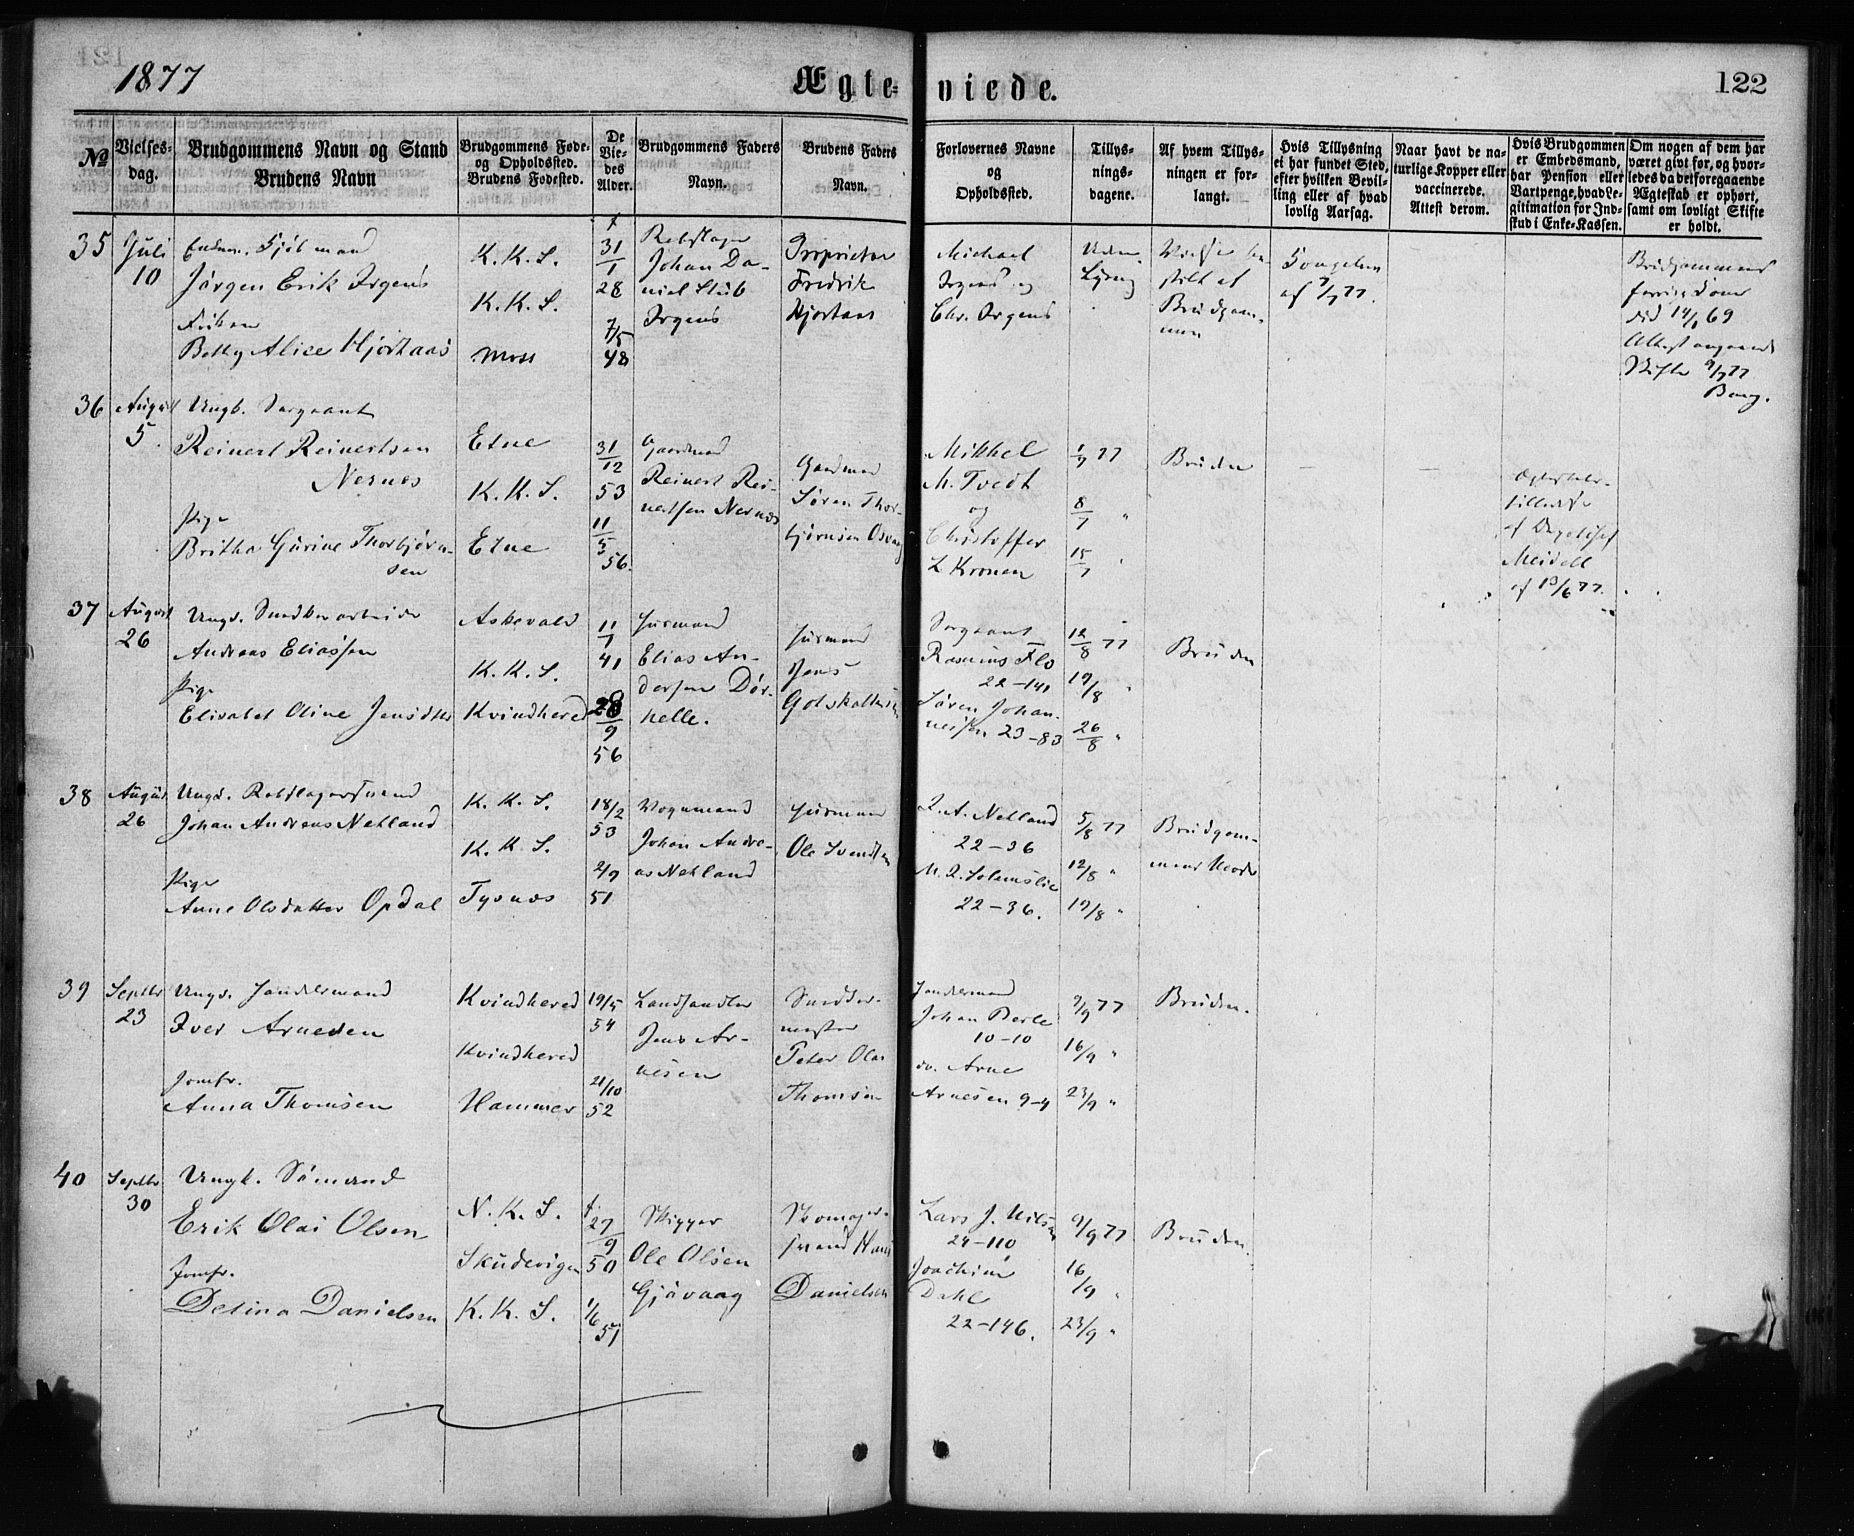 1877
Ægte- viede.
122
No
Vielses-dag.
Brudgommens Navn og Stand
Brudens Navn
Brudgommens Føde- og Opholdssted.
Brudens Fødested.
De Vie-des Alder.
Brudgommens Faders Navn.
Brudens Faders Navn.
Forlovernes Navne og Opholdssted.
Tillys-nings-dagene.
Af hvem Tillys-ningen er for-langt.
Hvis Tillysning ei har fundet Sted, efter hvilken Bevil-ling eller af hvad lovlig Aarsag.
Naar havt de na-turlige Kopper eller vaccinerede. Attest derom.
Hvis Brudgommen er Embedsmand, har Pension eller Vartpenge, hvad Le-gitimation for Ind-skud i Enke-Kassen.
Om nogen af dem har været gift før, og hvor-ledes da det foregaaende Ægteskab er ophørt, samt om lovligt Skifte er holdt.
35
Juli
10
Jørgen Erik Irgens
Betty Alice Hjortaas
K. K. S.
K. K. S.
Moss
31/1
28
7/5
48
Johan Da-
niel Stub
Irgens
Proprietær
Fredrik
Hjortaas
Michael
Irgens og
Chr. Irgens
Uden
Lysning
Brudgom-
men
af 7/7 77.
Brudgommens
forrige Kone
død 14/1 69
Skifte 9/7 77
36
August
5.
Ungk. Sergeant
Reinert Reinertsen
Nernes
Pige
Britha Gurine Thorbjørn-
sen
Etne
K. K. S.
Etne
31/12
53
11/5
56.
Gaardmand
Reinert Rei-
nertsen Nernes
Gaardmand
Søren Thor-
bjørnsen
Mikkel
M. Tvedt
og
Christoffer
L Kronen
1/7 77
8/7 "
15/7 "
Bruden
Meidell
af 13/6 77.
37
August
26
Andreas Eliassen
Pige
Elisabet Oline Jensdtr
Askevold
K. K. S.
Kvindhered
11/1
41
28/9
56
Husmand
Elias An-
dersen
Husmand
Jens
Sergeant
Rasmus Flo
22-141
Søren Johan-
nessen 23-83
12/8 77
19/8 "
26/8 "
Bruden
38
August
26
Ungk. Rebslagersvend
Johan Andreas Netland
Pige
Anne Olsdatter Opdal
K. K. S.
K. K. S.
Tysnes
18/2
53
2/9
51
Vognmand
Johan Andre-
as Netland
Husmand
Ole Svendsen
Netland
22-36
22-36.
5/8 77
12/8 "
19/8 "
Brudgom-
mens Moder
39
Septbr
23
Ungk. Handelsmand
Iver Arnesen
Jomfr.
Anna Thomsen
Kvindhered
Kvindhered
Hammer
19/5
54
21/10
52
Landhandler
Jens Ar-
nesen
Smedde-
mester
Peter Olai
Thomsen
Handelsmand
Johan Berle
10-10
do. Arne
Arnesen 9-4
9/9 77
16/9 "
23/9 "
Bruden.
40
Septbr
30
Ungk. Sømand
Erik Olai Olsen
Jomfr.
Delina Danielsen
N. K. S.
Skudevigen
K. K. S.
27/9
50
1/6
51
Skipper
Ole Olsen
Gjøvaag
Skomager-
svend Hans
Danielsen
Lars J. Nilsen
24-110
Joachim
Dahl
22-146.
9/9 77
16/9 "
23/9 "
Bruden.